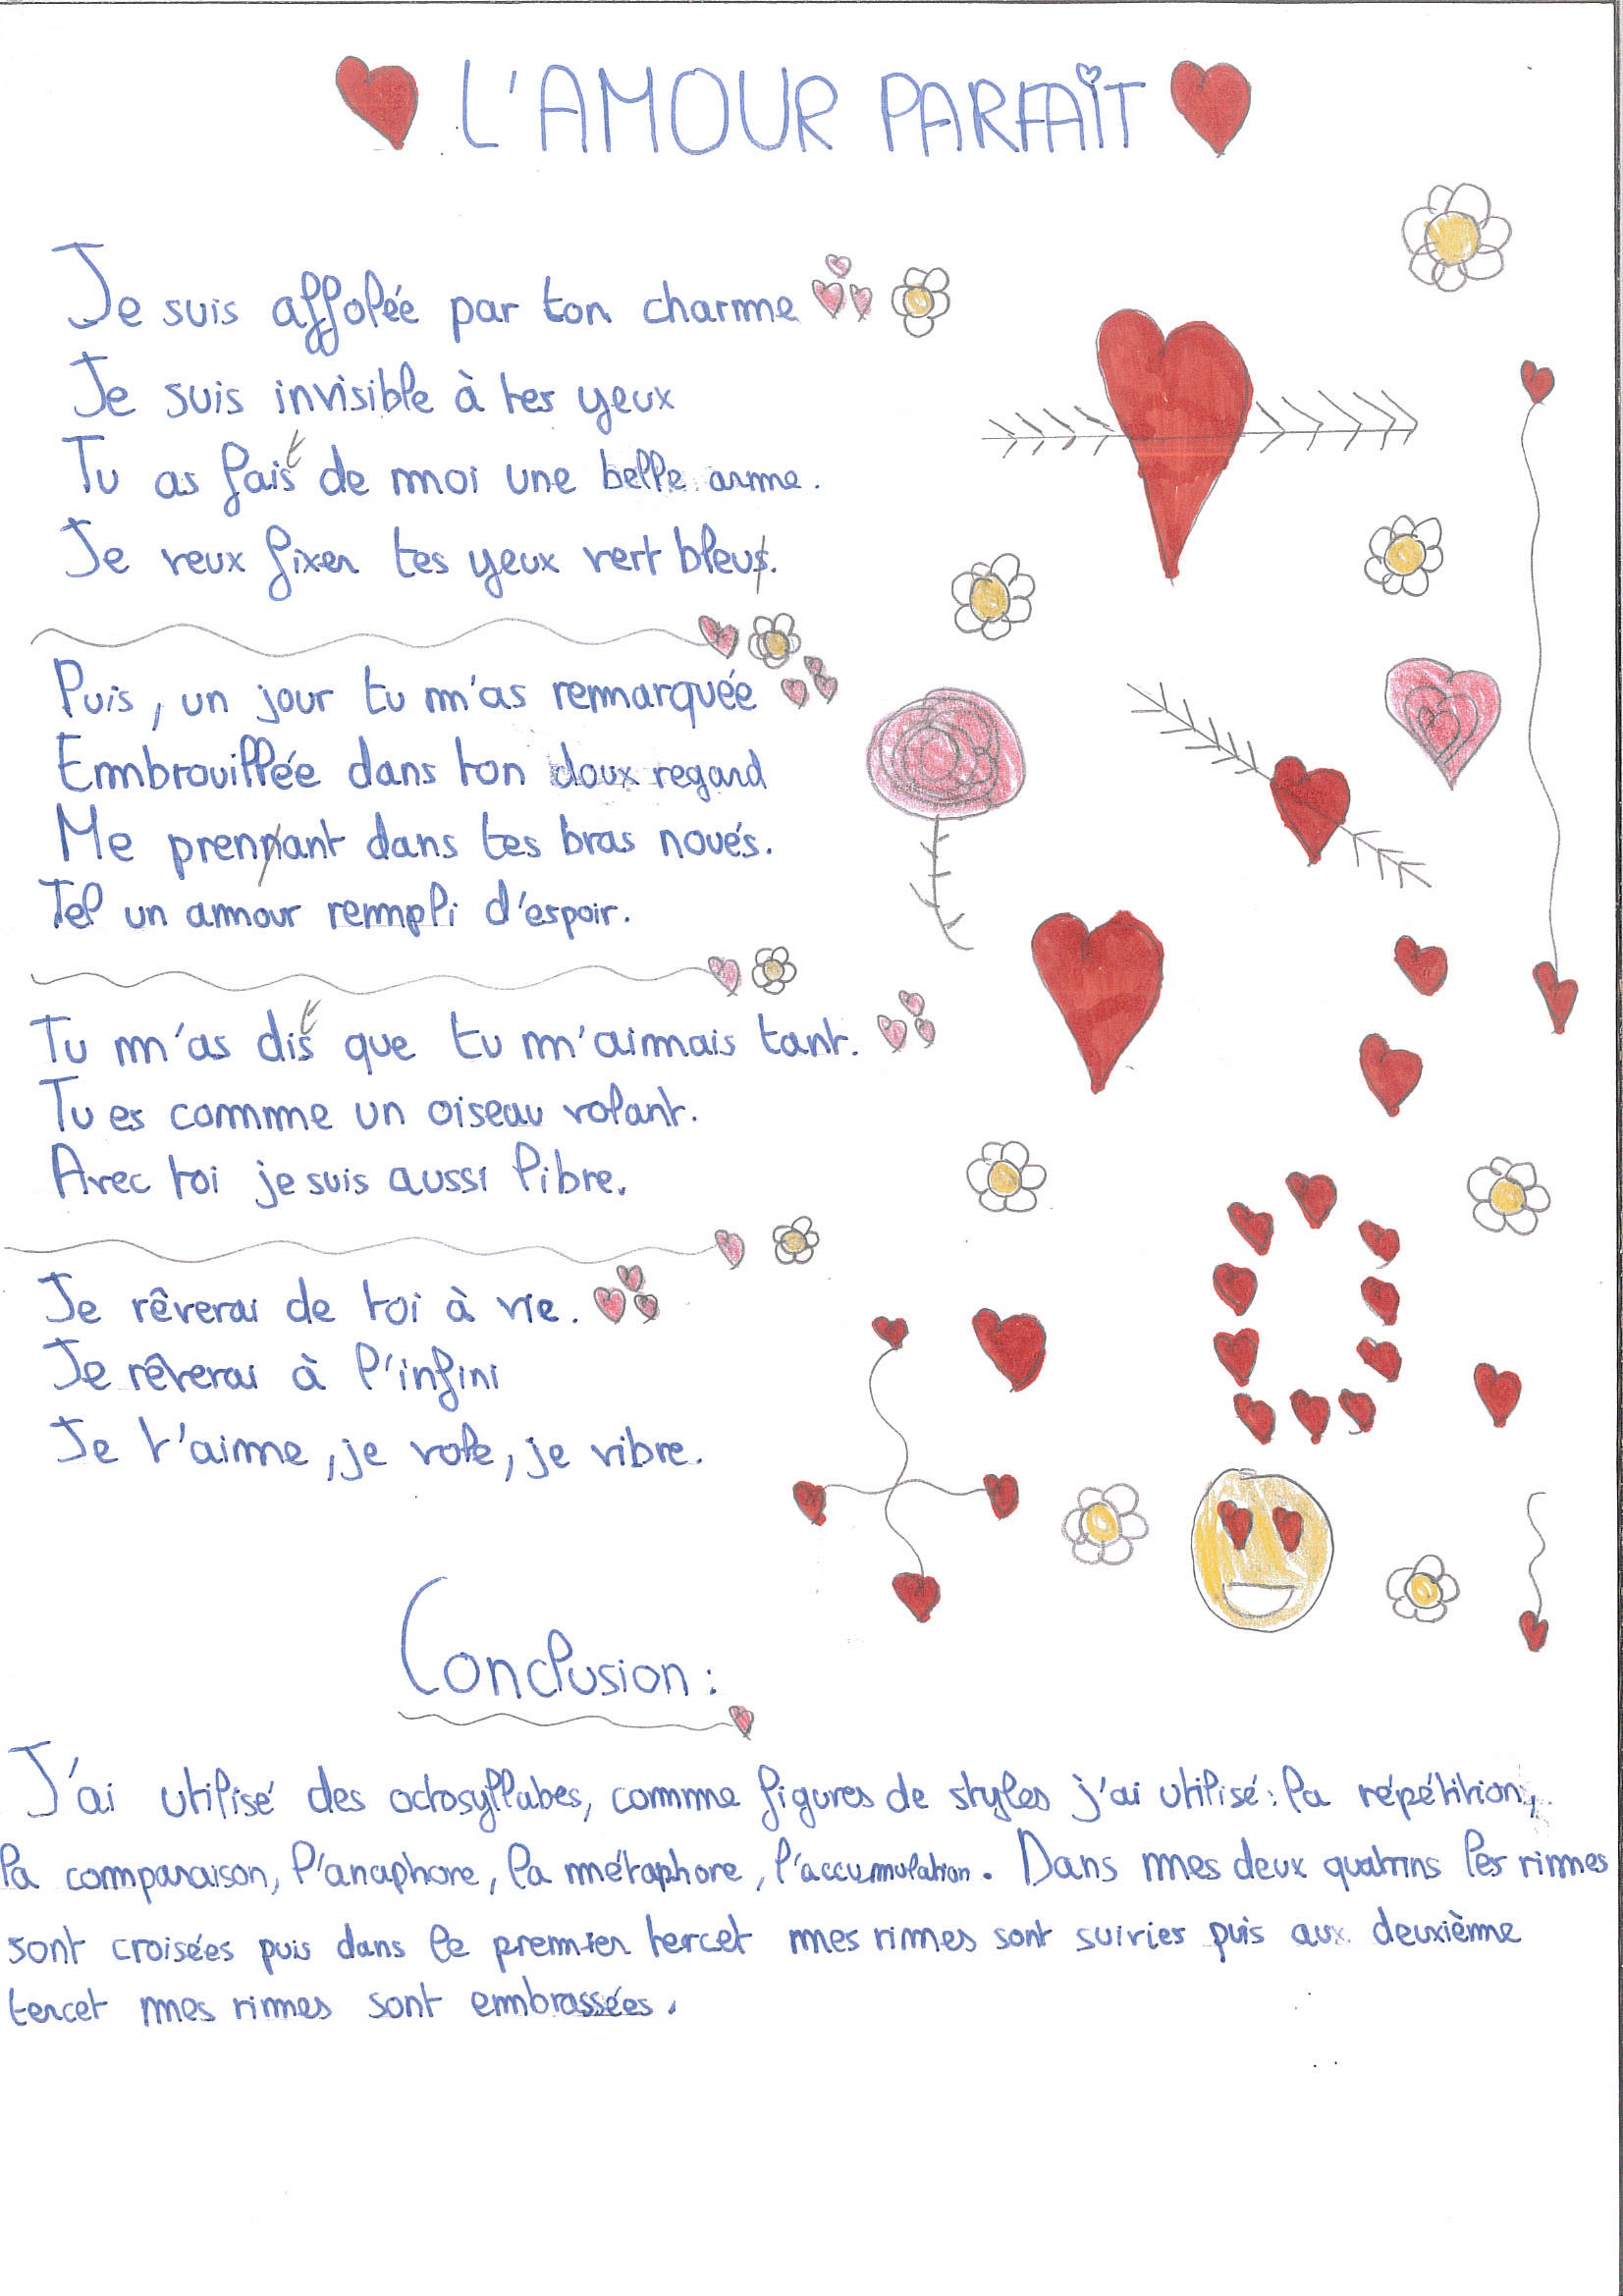 L'AMOUR PARFAIT
Je suis affolée par ton charme
Je suis invisible à tes yeux
Tu as fait de moi une belle arme.
Je veux fixer tes yeux vert bleu.
Puis, un jour tu m'as remarquée
Embrouillée dans ton doux regard
Me prenant dans tes bras noués.
Tel un amour rempli d'espoir.
Tu m'as dit que tu m'aimais tant.
Tu es comme un oiseau volant.
Avec toi je suis aussi libre.
Je rêverai de toi à vie.
Je rêverai à l'infini
Je t'aime, je vole, je vibre.
Conclusion:
J'ai utilisé des octosyllabes, comme figures de styles j'ai utilisé: la répétition,
la comparaison, l'anaphore, la métaphore, l'accumulation. Dans mes deux quatrins les rimes
sont croisées puis dans le premier tercet mes rimes sont suivies puis aux deuxième
tercet mes rimes sont embrassées.